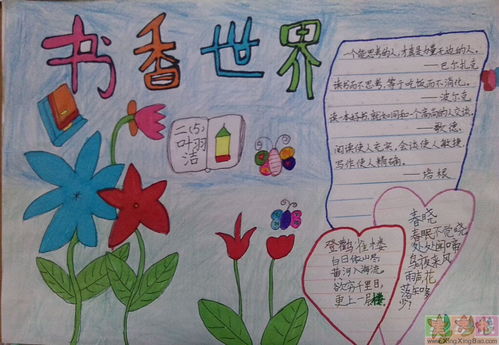 书香世界
一个能思考的人,才真是力量无边的人。
——巴尔扎克
读书而不思考,等于吃饭而不消化。
——波尔克
读一本好书,就如同和一个高尚的人交谈。
——歌德
阅读使人充实,会谈使人敏捷,
写作使人精确。
——培根
二(5)
叶羽
洁
春晓
春眠不觉晓
处处闻啼
鸟夜来风
雨声花
落知多
少?
登鹳雀楼
白日依山尽
黄河入海流
欲穷千里目,
更上一层楼
www.6XingXingBao.com